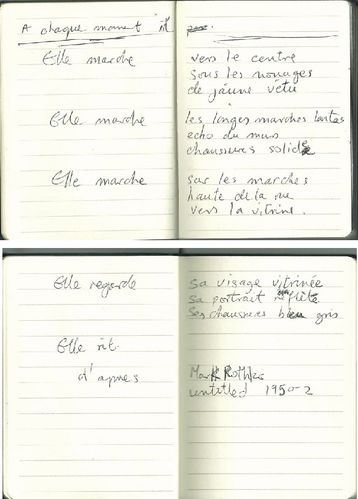 A chaque moment rit
Elle marche vers le centre
sous les nouages
de jaune vétu
Elle marche les longes marches lentes
echo du murs
chaussures solids
Elle marche sur les marches
haute de la rue
vers la vitrine.
Elle regarde sa visage vitrinée
sa portrait reflété
Ses chaussures bleu gris
Elle rit.
d'apres Mark Rothko
untitled 1950-2